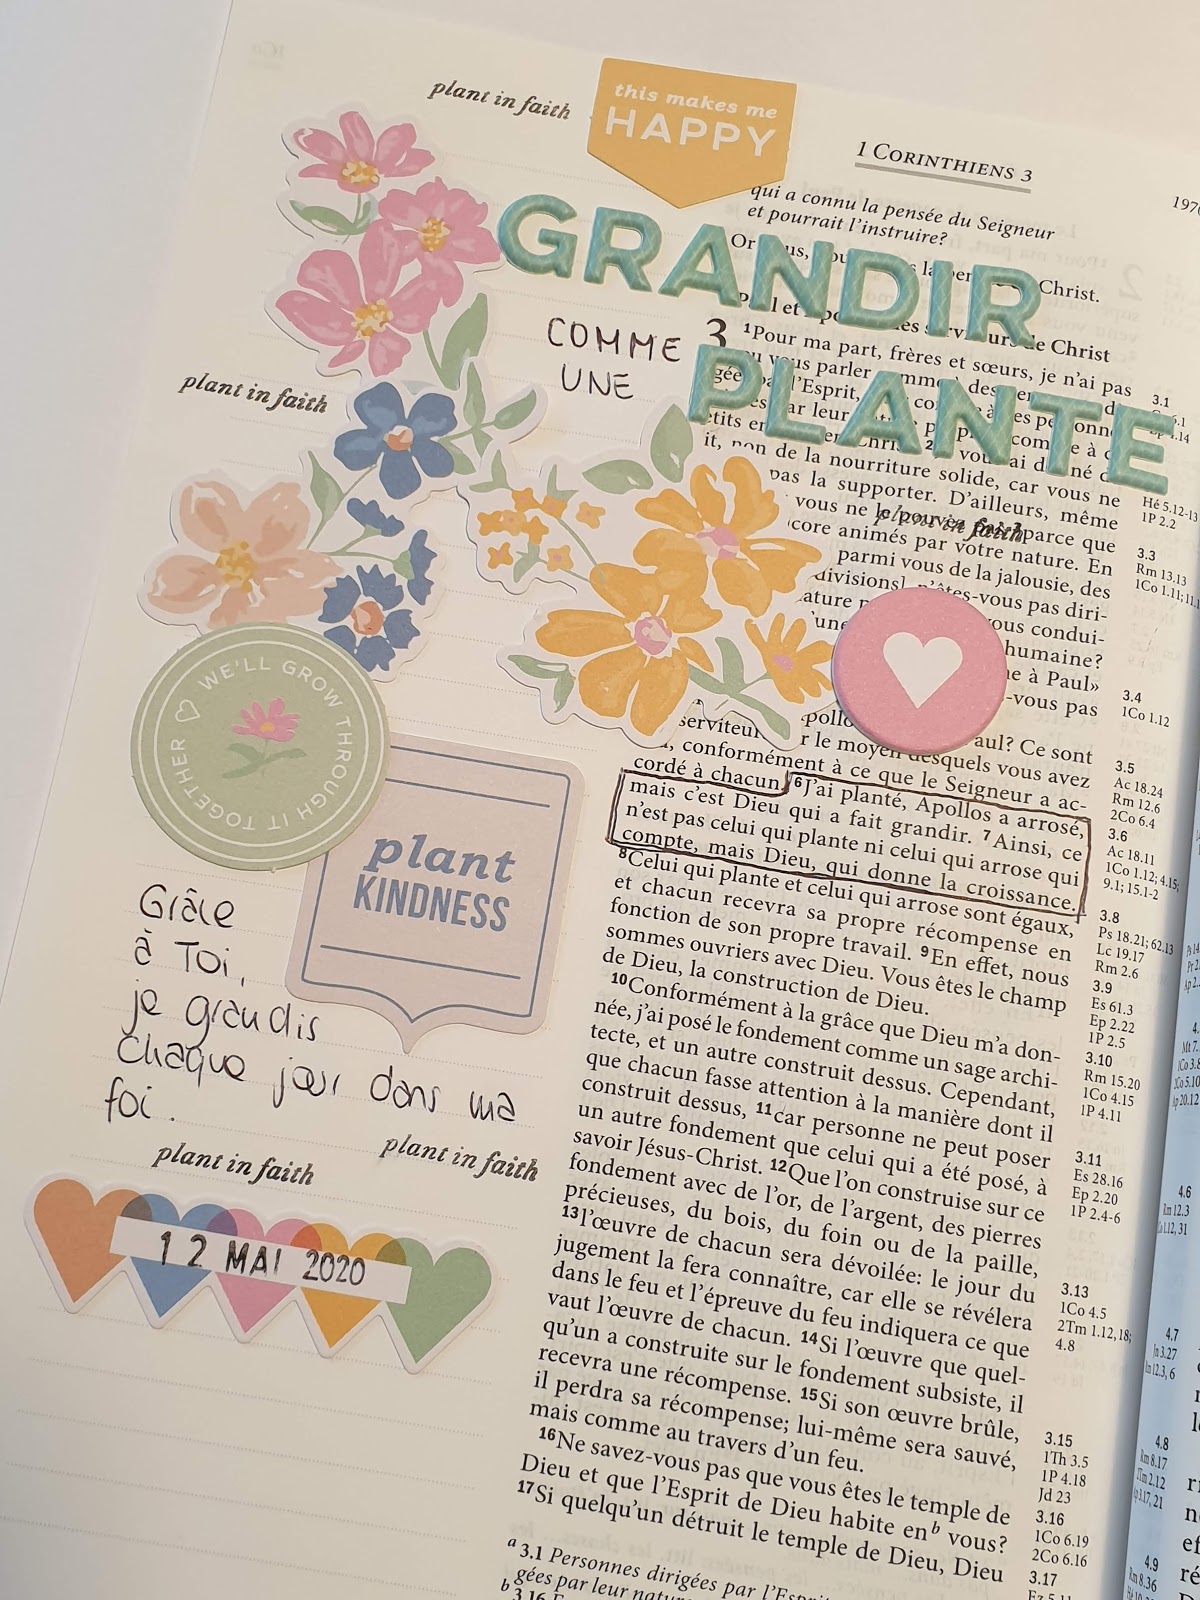 plant in faith
this makes me
HAPPY
1 CORINTHIENS 3
qui a connu la pensée du Seigneur
et pourrait l'instruire?
GRANDIR
Christ.
COMME
UNE
PLANTE
plant in faith
3
1Pour ma part, frères et sœurs, je n'ai pas
non de la nourriture solide, car vous ne
pas la supporter. D'ailleurs, même
vous ne
parce que
plant in faith
animés par votre nature. En
parmi vous de la jalousie, des
vous pas diri-
vous condui-
humaine?
à Paul»
-vous pas
Paul? Ce sont
le moyen desquels vous avez
conformément à ce que le Seigneur a ac-
cordé à chacun. 6J'ai planté, Apollos a arrosé,
mais c'est Dieu qui a fait grandir. 7Ainsi, ce
n'est pas celui qui plante ni celui qui arrose qui
compte, mais Dieu, qui donne la croissance.
8Celui qui plante et celui qui arrose sont égaux,
et chacun recevra sa propre récompense en
fonction de son propre travail. 9En effet, nous
sommes ouvriers avec Dieu. Vous êtes le champ
de Dieu, la construction de Dieu.
10Conformément à la grâce que Dieu m'a don-
née, j'ai posé le fondement comme un sage archi-
tecte, et un autre construit dessus. Cependant,
que chacun fasse attention à la manière dont il
construit dessus, 11car personne ne peut poser
un autre fondement que celui qui a été posé, à
savoir Jésus-Christ. 12Que l'on construise sur ce
fondement avec de l'or, de l'argent, des pierres
précieuses, du bois, du foin ou de la paille,
13l'œuvre de chacun sera dévoilée: le jour du
jugement la fera connaître, car elle se révélera
dans le feu et l'épreuve du feu indiquera ce que
vaut l'œuvre de chacun. 14Si l'œuvre que quel-
qu'un a construite sur le fondement subsiste, il
recevra une récompense. 15Si son œuvre brûle,
il perdra sa récompense; lui-même sera sauvé,
mais comme au travers d'un feu.
16Ne savez-vous pas que vous êtes le temple de
Dieu et que l'Esprit de Dieu habite en b vous?
17Si quelqu'un détruit le temple de Dieu, Dieu
a 3.1 Personnes dirigées par l'Esprit
gées par leur nature
b 3.16
WE'LL GROW THROUGH IT TOGETHER
plant
KINDNESS
Grâce
à Toi,
je grandis
chaque jour dans ma
foi.
plant in faith
plant in faith
12 MAI 2020
3.1
Hé 5.12-13
1P 2.2
3.3
Rm 13.13
3.4
1Co 1.12
3.5
Ac 18.24
Rm 12.6
2Co 6.4
3.6
Ac 18.11
1Co 1.12; 4.15;
9.1; 15.1-2
3.8
Ps 18.21; 62.13
Lc 19.17
Rm 2.6
3.9
Es 61.3
Ep 2.22
1P 2.5
3.10
Rm 15.20
1Co 4.15
1P 4.11
3.11
Es 28.16
Ep 2.20
1P 2.4-6
3.13
1Co 4.5
2Tm 1.12,18;
4.8
3.15
1Th 3.5
1P 4.18
Jd 23
3.16
1Co 6.19
2Co 6.16
3.17
4.6
Rm 12.3
4.7
Jn 3.27
Rm 12.3, 6
4.8
Rm 8.17
2Tm 2.12
4.9
Rm 8.36